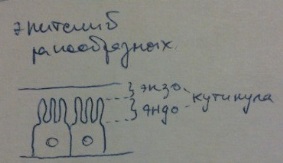 эпителий
ракообразных.
экзо
эндо
кутикула